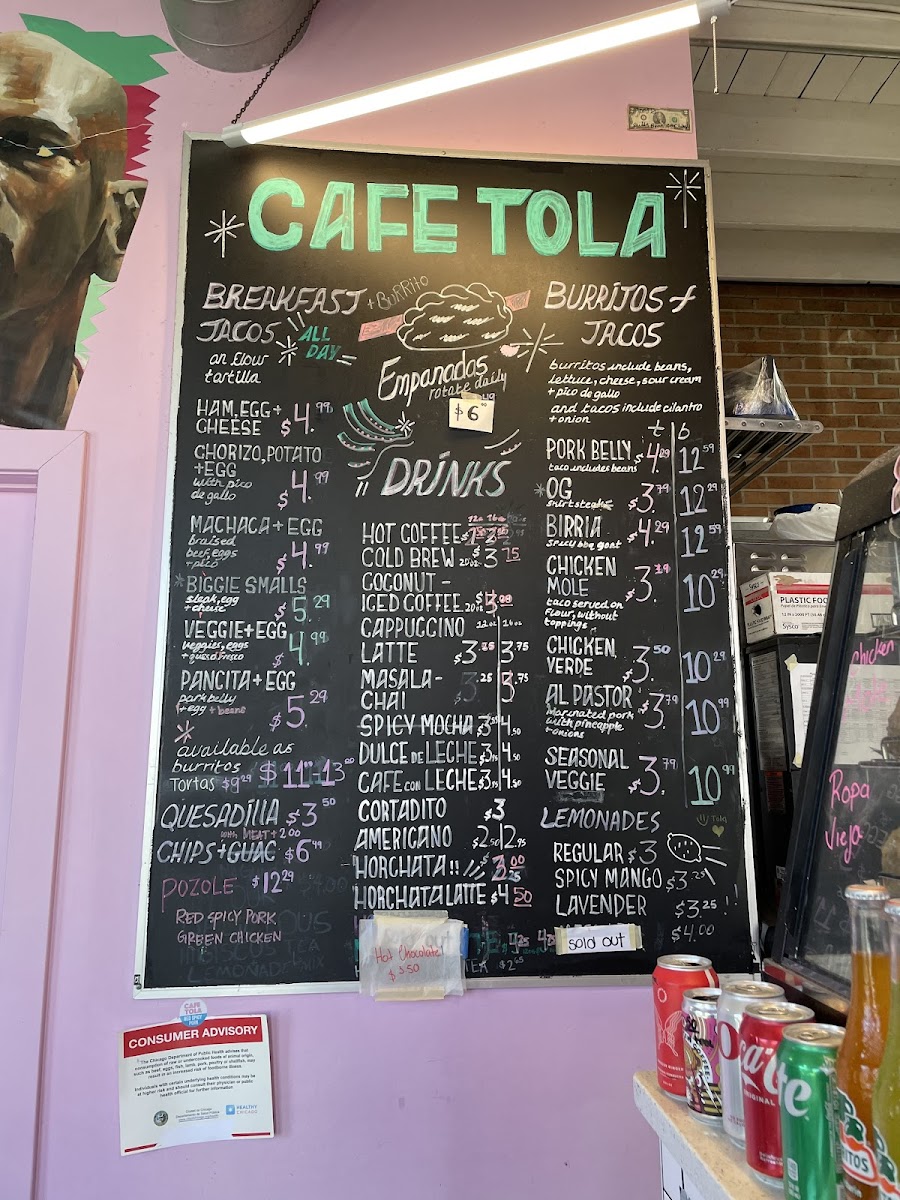 CAFE TOLA
BREAKFAST + BURRITO
TACOS ALL DAY
on flour
tortilla
HAM, EGG +
CHEESE $4.99
CHORIZO, POTATO
+ EGG
with pico
de gallo $4.99
MACHACA + EGG
braised
beef, eggs
+ pico $4.99
*BIGGIE SMALLS
steak, egg
+ cheese $5.29
VEGGIE + EGG
veggies, eggs
+ queso fresco $4.99
PANCITA + EGG
pork belly
+ egg + beans $5.29
*
available as
burritos
TORTAS $9.29 $11.00-13.00
QUESADILLA $3.50
WITH MEAT + 2.00
CHIPS + GUAC $6.49
POZOLE $12.29
RED SPICY PORK
GREEN CHICKEN
LEMONADE MIX
Empanadas
rotate daily
$6
DRINKS
HOT COFFEE
COLD BREW 20oz $3.75
COCONUT -
ICED COFFEE 20oz
CAPPUCCINO 12oz 16oz
LATTE $3.25 3.75
MASALA-
CHAI 3.25 3.75
SPICY MOCHA 4.50
DULCE DE LECHE 3.75 4.50
CAFE CON LECHE 3.75 4.50
CORTADITO $3
AMERICANO $2.50 2.95
HORCHATA!!
HORCHATA LATTE $4.50
Hot Chocolate!
$3.50
$2.65
BURRITOS +
TACOS
burritos include beans,
lettuce, cheese, sour cream
+ pico de gallo
and tacos include cilantro
+ onion
t b
PORK BELLY $4.29 12.59
taco includes beans
*OG $3.79 12.29
skirt steak
BIRRIA $4.29 12.59
spicy bbq goat
CHICKEN
MOLE 10.29
taco served on
flour, without
toppings
CHICKEN
VERDE $3.50 10.29
AL PASTOR $3.79 10.99
marinated pork
with pineapple
+ onions
SEASONAL
VEGGIE $3.79 10.99
Tola
LEMONADES
REGULAR $3
SPICY MANGO $3.25
LAVENDER $3.25
sold out $4.00
CAFE
TOLA
CONSUMER ADVISORY
The Chicago Department of Public Health advises that
consumption of raw or undercooked foods of animal origin,
such as beef, eggs, fish, lamb, pork, poultry or shellfish, may
result in an increased risk of foodborne illness.
Individuals with certain underlying health conditions may be
at higher risk and should consult their physician or public
health official for further information
HEALTHY
CHICAGO
PLASTIC FOO
Sysco
chicken
Ropa
Vieja
ORIGINAL